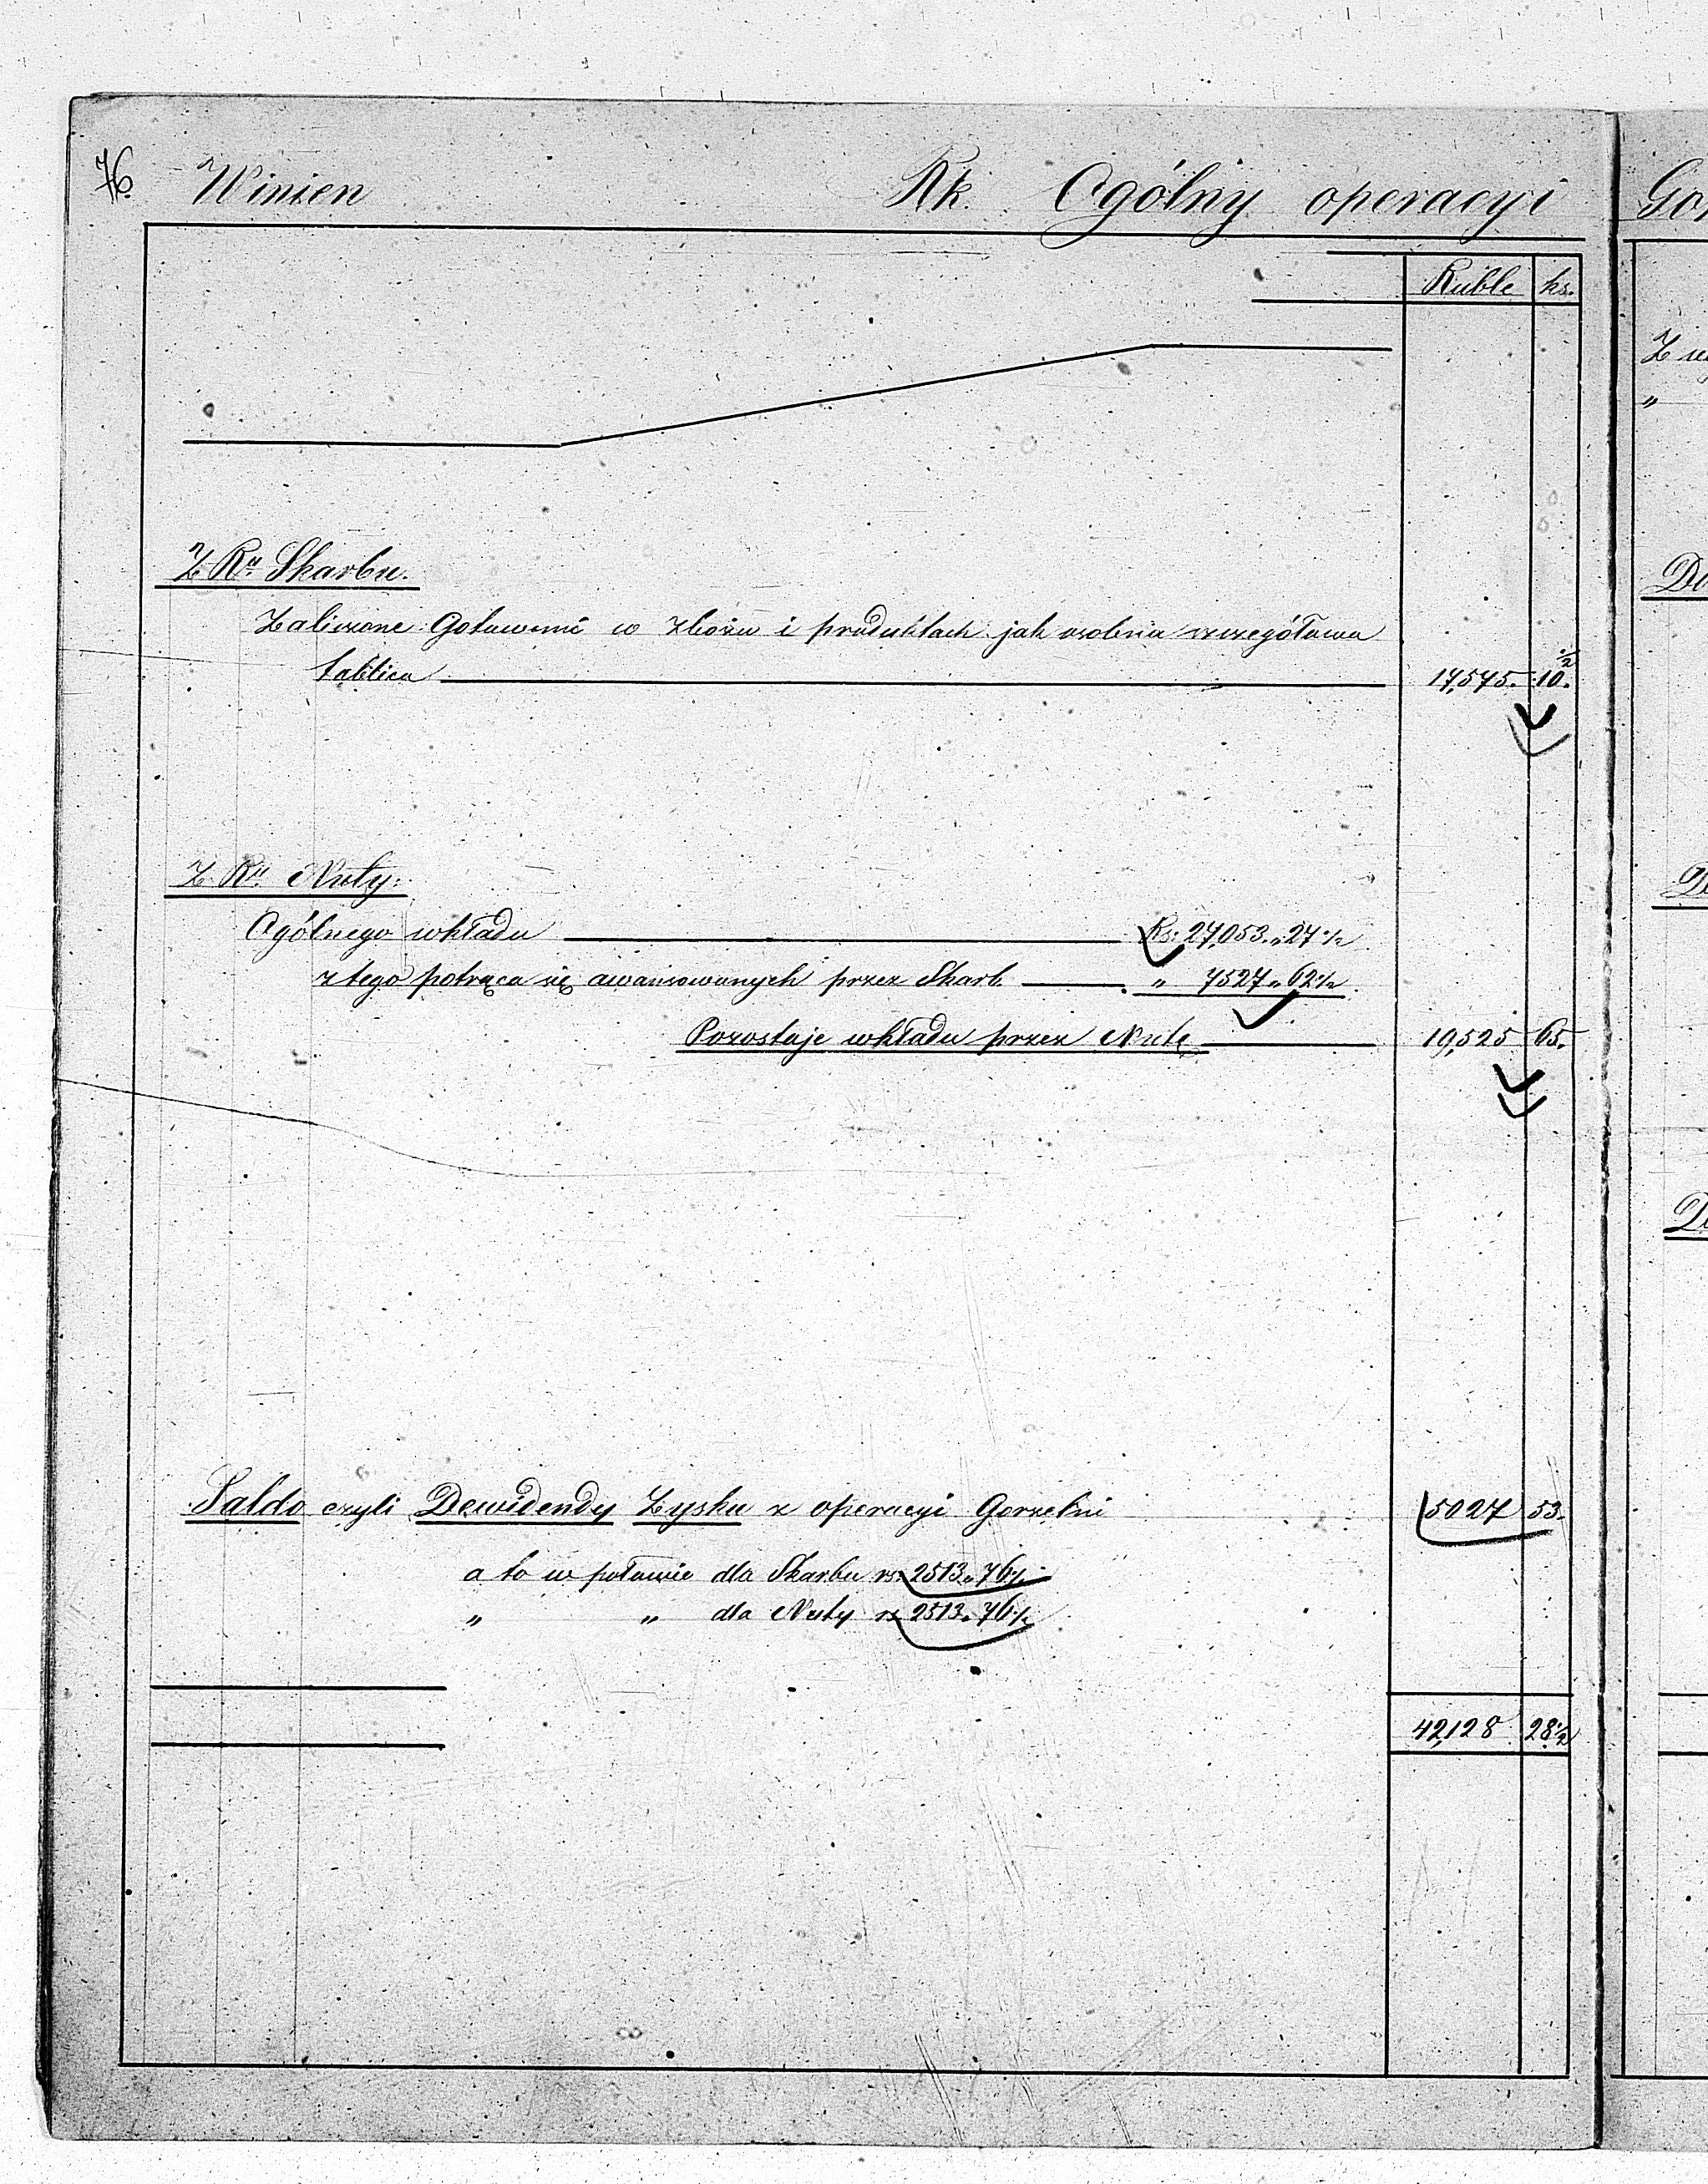 76. Winien Rk. Ogólny operacyi
Ruble ks.
Z Ru. Skarbu.
Zaliczone Gotowemi w Zbożu i produktach jak osobna szczegółowa
tablica 17,575. 10.½
Z Ru. Nuty:
Ogólnego wkładu Rs: 27,053.„27½
z tego potrąca się awansowanych przez Skarb „ 7527„62½
Pozostaje wkładu przez Nutę 19,525 65.
Saldo czyli Dewidendy Zysku z operacyi Gorzelni 5027 53.
a to w połowie dla Skarbu rs. 2513„76½
„ „ dla Nuty rs 2513„76½
42,128 28½